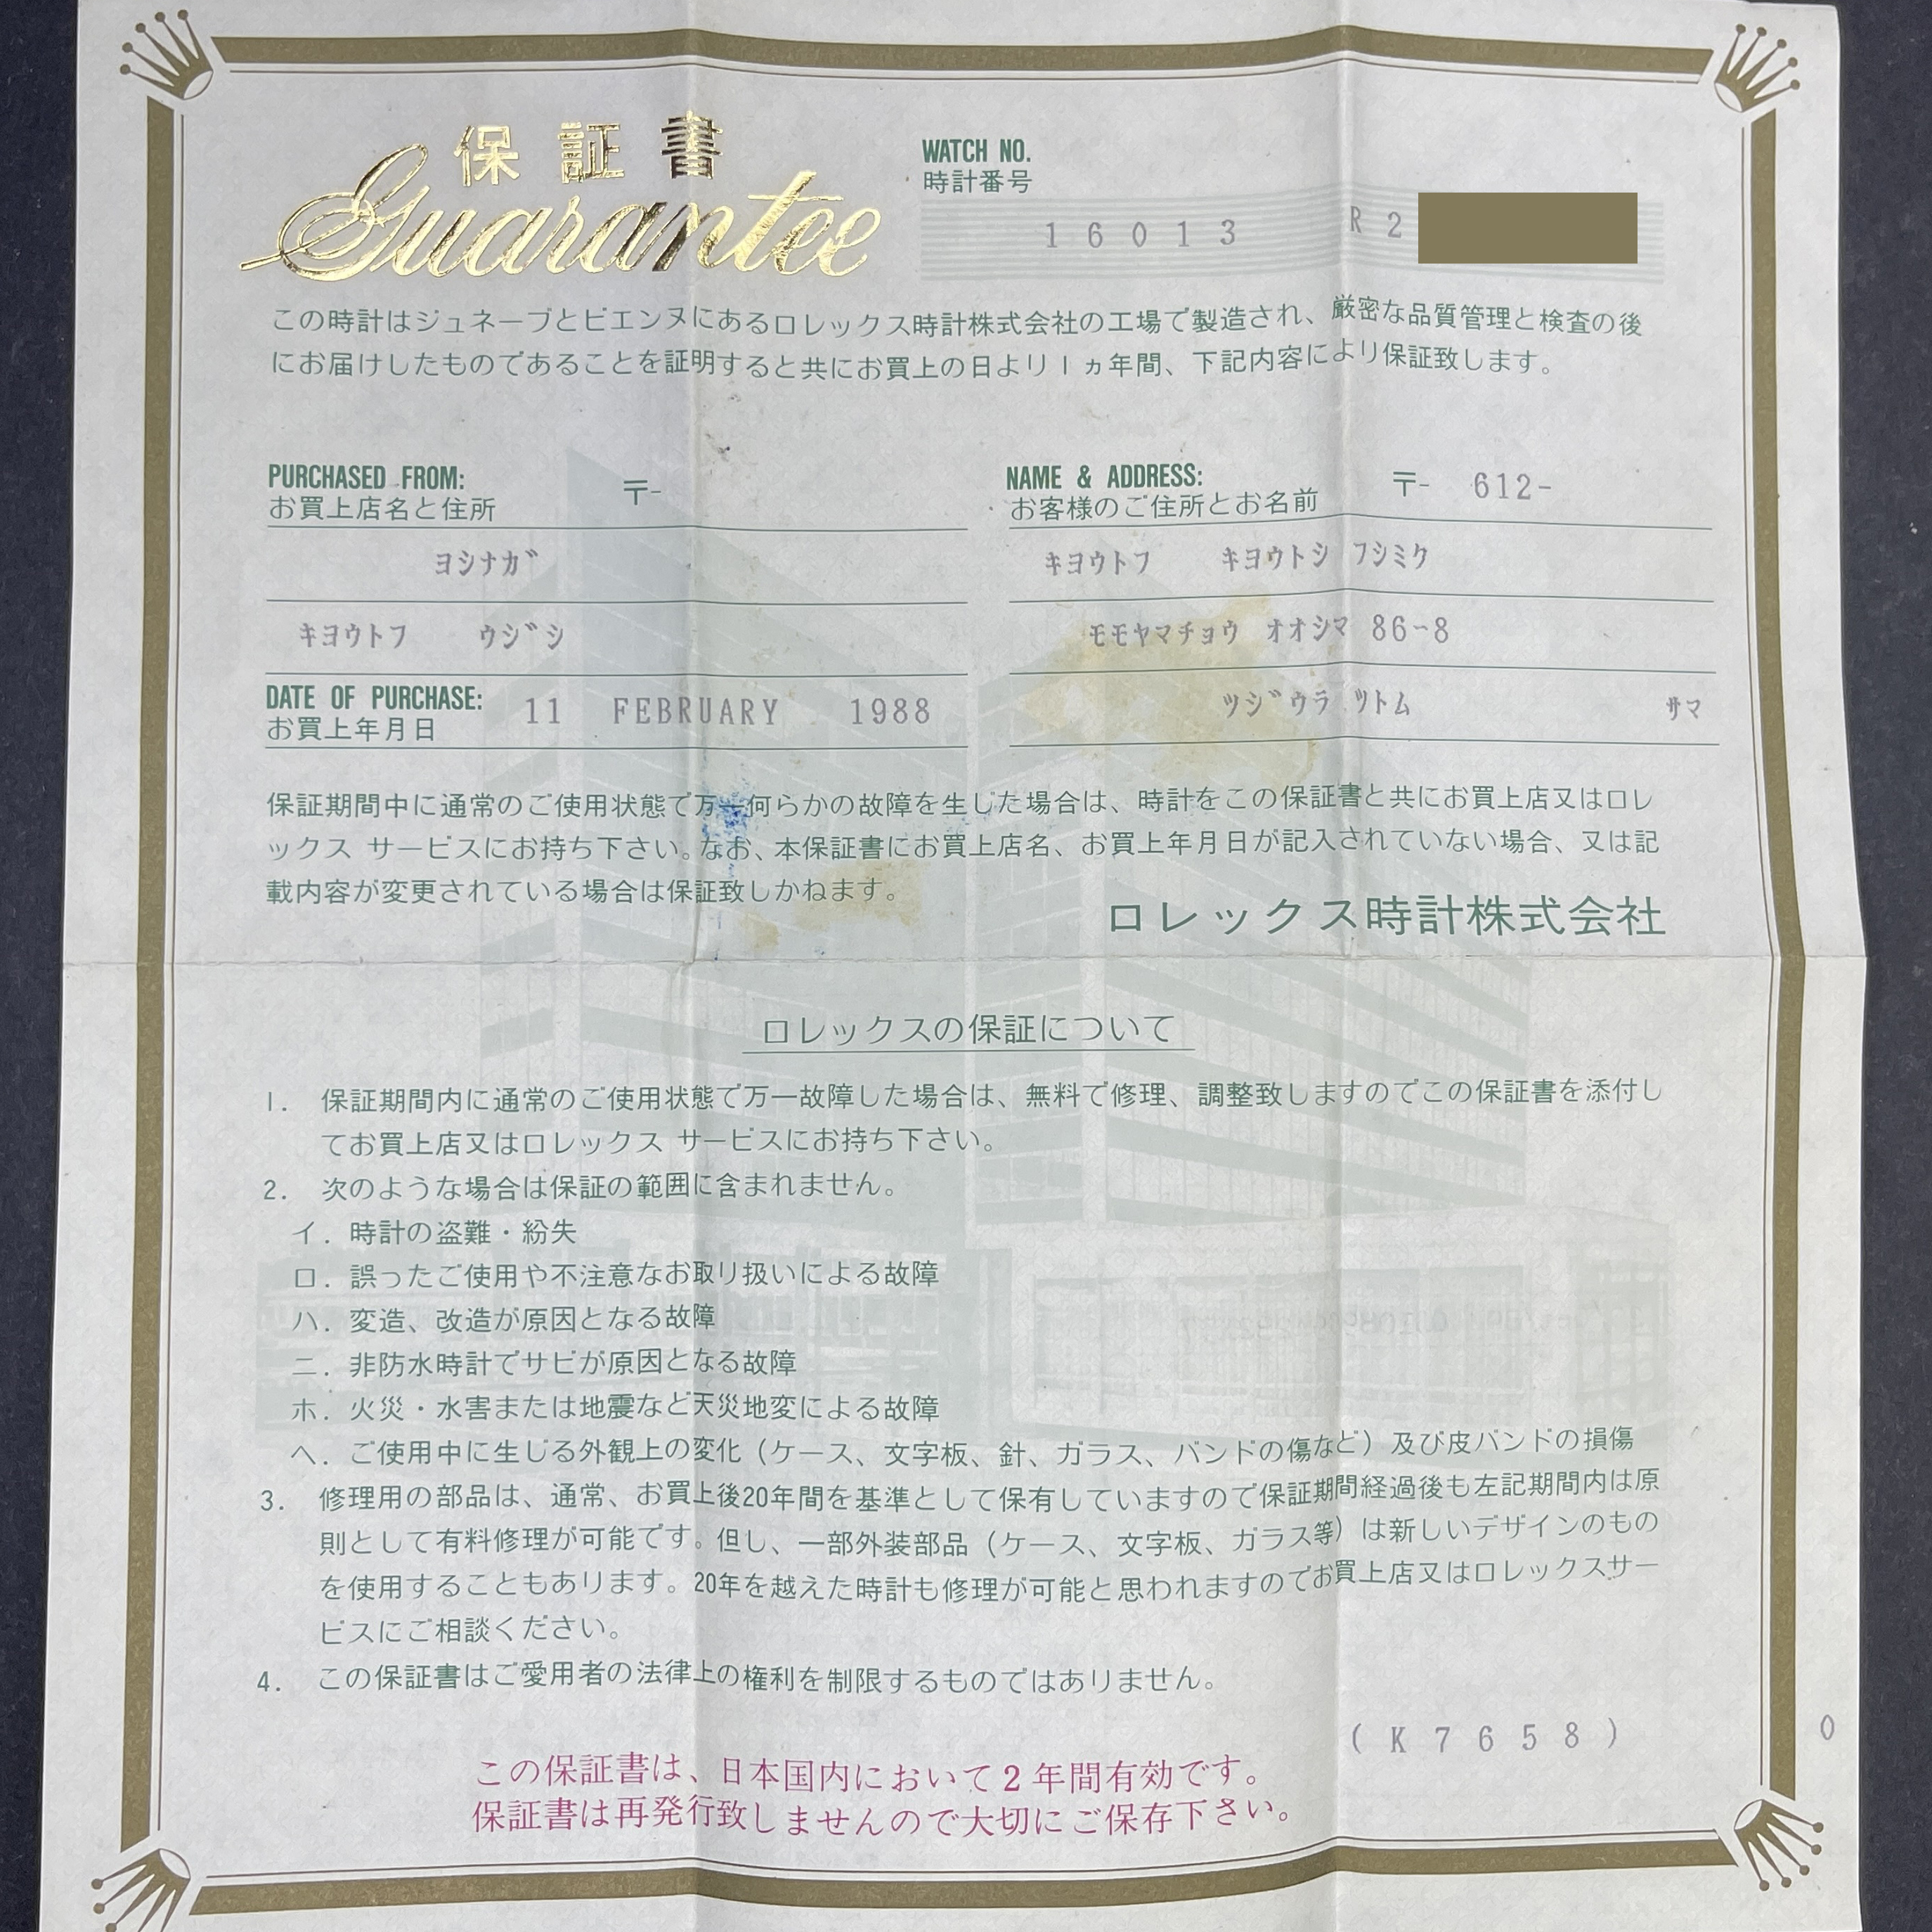 保証書
Guarantee
WATCH NO.
時計番号
16013 R2
この時計はジュネーブとビエンヌにあるロレックス時計株式会社の工場で製造され、厳密な品質管理と検査の後
にお届けしたものであることを証明すると共にお買上の日より1ヵ年間、下記内容により保証致します。
PURCHASED FROM:
お買上店名と住所 〒-
ヨシナガ
キヨウトフ ウジシ
DATE OF PURCHASE: 11 FEBRUARY 1988
お買上年月日
NAME & ADDRESS:
お客様のご住所とお名前 〒- 612-
キヨウトフ キヨウトシ フシミク
モモヤマチョウ オオシマ 86-8
ツジウラ ツトム サマ
保証期間中に通常のご使用状態で万一何らかの故障を生じた場合は、時計をこの保証書と共にお買上店又はロレ
ックス サービスにお持ち下さい。なお、本保証書にお買上店名、お買上年月日が記入されていない場合、又は記
載内容が変更されている場合は保証致しかねます。
ロレックス時計株式会社
ロレックスの保証について
1. 保証期間内に通常のご使用状態で万一故障した場合は、無料で修理、調整致しますのでこの保証書を添付し
てお買上店又はロレックス サービスにお持ち下さい。
2. 次のような場合は保証の範囲に含まれません。
イ. 時計の盗難・紛失
ロ. 誤ったご使用や不注意なお取り扱いによる故障
ハ. 変造、改造が原因となる故障
ニ. 非防水時計でサビが原因となる故障
ホ. 火災・水害または地震など天災地変による故障
ヘ. ご使用中に生じる外観上の変化（ケース、文字板、針、ガラス、バンドの傷など）及び皮バンドの損傷
3. 修理用の部品は、通常、お買上後20年間を基準として保有していますので保証期間経過後も左記期間内は原
則として有料修理が可能です。但し、一部外装部品（ケース、文字板、ガラス等）は新しいデザインのもの
を使用することもあります。20年を越えた時計も修理が可能と思われますのでお買上店又はロレックスサー
ビスにご相談ください。
4. この保証書はご愛用者の法律上の権利を制限するものではありません。
(K7658) 0
この保証書は、日本国内において2年間有効です。
保証書は再発行致しませんので大切にご保存下さい。